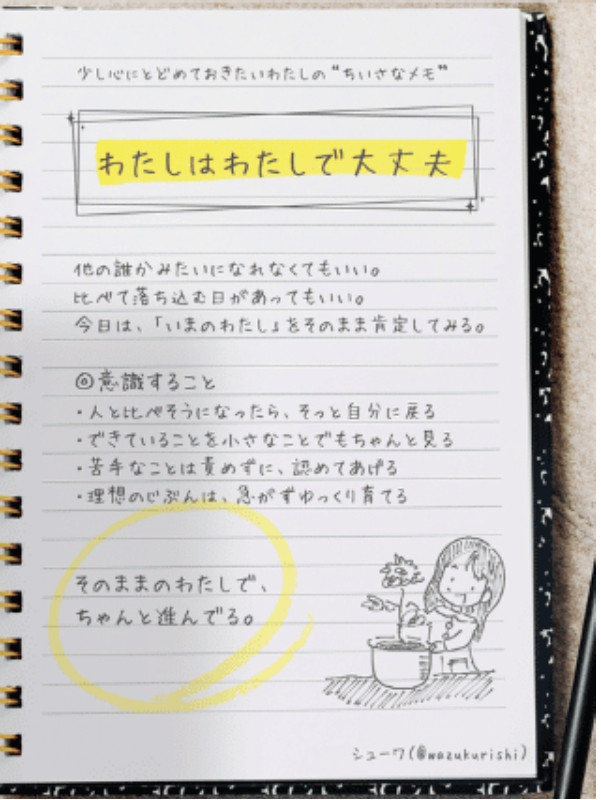 少し心にとどめておきたいわたしの“ちいさなメモ”
わたしはわたしで大丈夫
他の誰かみたいになれなくてもいい。
比べて落ち込む日があってもいい。
今日は、「いまのわたし」をそのまま肯定してみる。
◎意識すること
・人と比べそうになったら、そっと自分に戻る
・できていることを小さなことでもちゃんと見る
・苦手なことは責めずに、認めてあげる
・理想のじぶんは、急がずゆっくり育てる
そのままのわたしで、
ちゃんと進んでる。
シューワ(@wazukurishi)